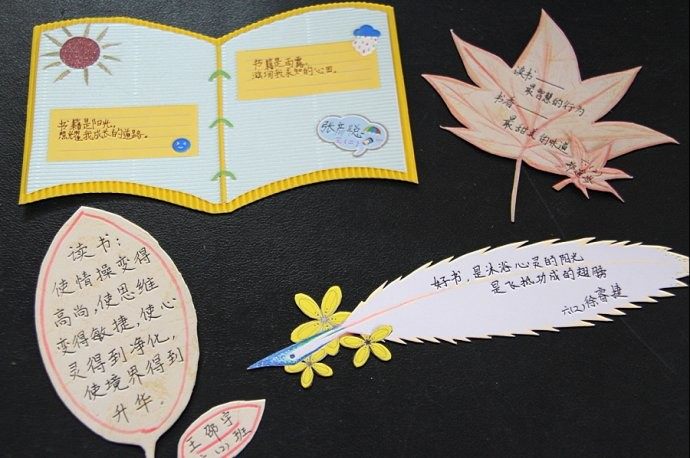 书籍是阳光,
照耀我成长的道路。
书籍是雨露,
滋润我求知的心田。
读书——
最智慧的行为
书香——
最甜美的味道
读书:
使情操变得
高尚,使思维
变得敏捷,使心
灵得到净化,
使境界得到
升华。
王邵宇
六(2)班
好书,是沐浴心灵的阳光
是飞抵功成的翅膀
六(2)徐睿捷